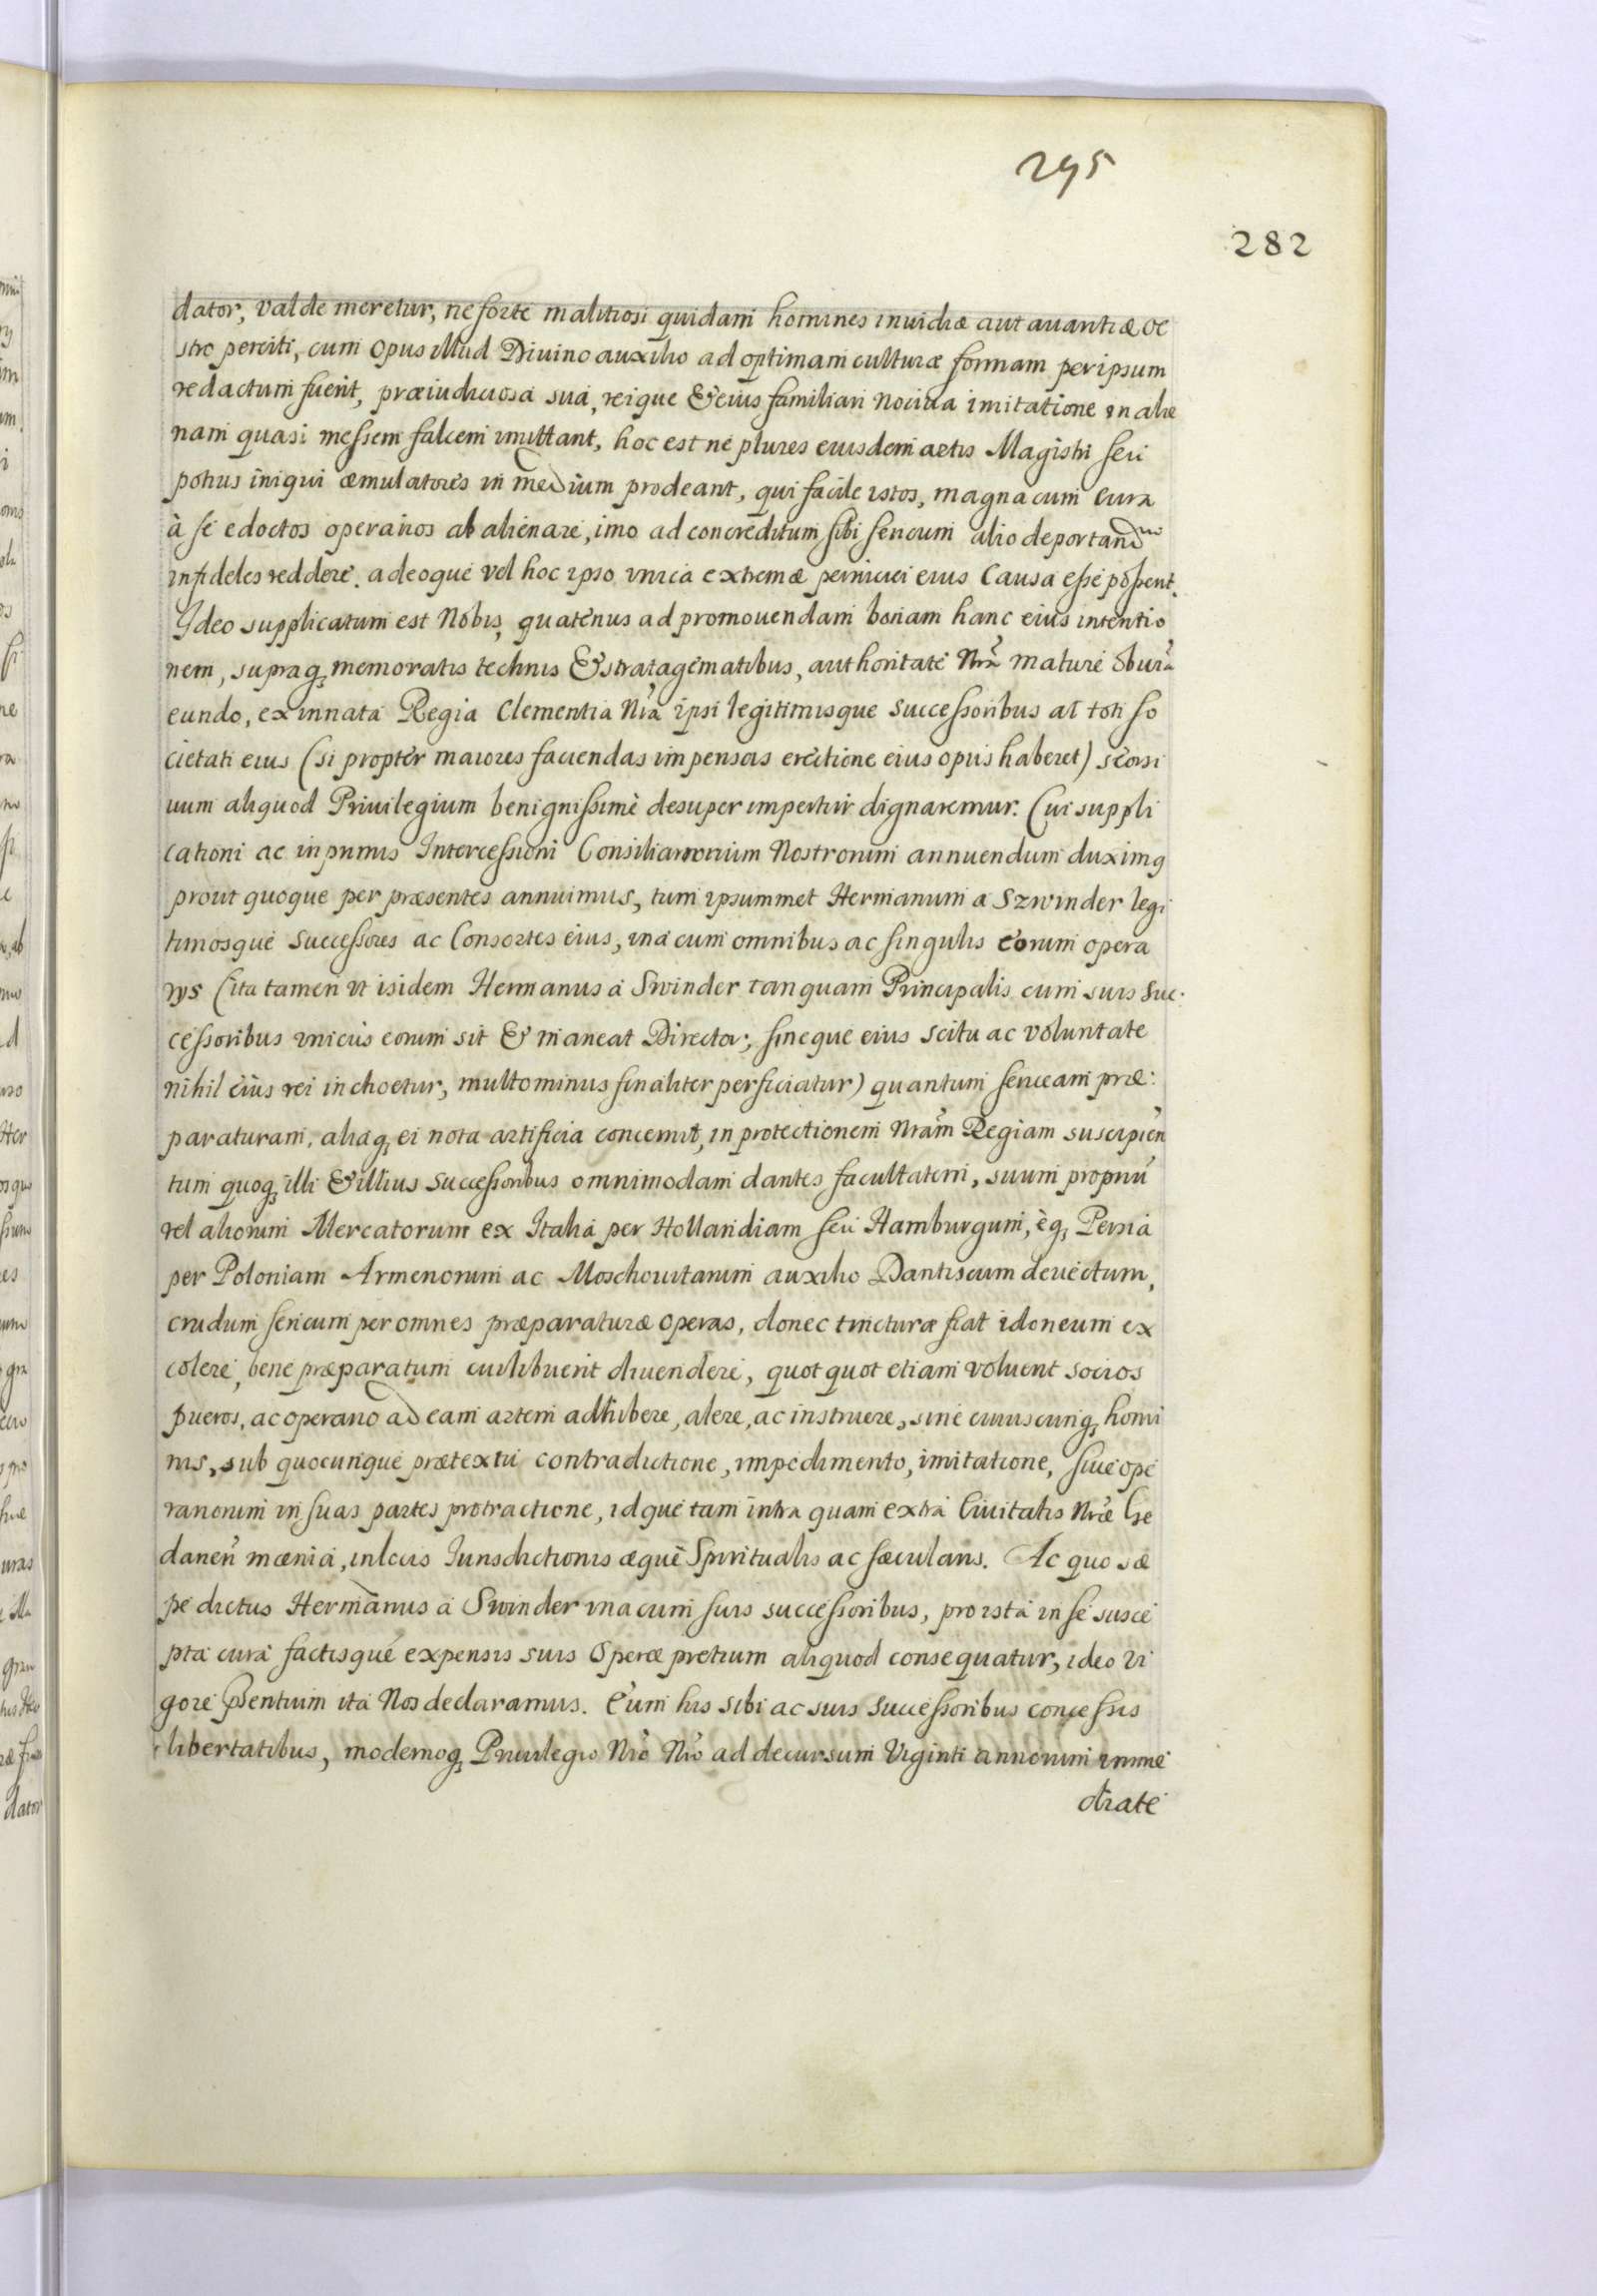 295
282
dator, valde meretur, ne forte malitiosi quidam homines inuidiæ aut auaritiæ oe
stro perciti, cum opus illud Diuino auxilio ad optimam culturæ formam per ipsum
redactum fuerit, præiudiciosa sua, reique & eius familiari nociua imitatione in alie
nam quasi messem falcem imittant, hoc est ne plures eiusdem artis Magistri seu
potius iniqui æmulatores in medium prodeant, qui facile istos, magna cum cura
à se edoctos operarios ab alienare, imo ad concreditum sibi sericum alio deportand
infideles reddere. adeoque vel hoc ipso vnica extremæ perniciei eius Causa esse possent.
Ideo supplicatum est Nobis, quatenus ad promouendam bonam hanc eius intentio
nem, supraq memoratis technis & stratagematibus, authoritate Nrã mature obuiã
eundo, ex innata Regia Clementia Nrã ipsi legitimisque successoribus at toti so
cietati eius (si propter maiores faciendas impensas erectione eius opus haberet) seorsi
uum aliquod Priuilegium benignissimè desuper impertiri dignaremur. Cui suppli
cationi ac inprimis Intercessioni Consiliariorum Nostrorum annuendum duximq
prout quoque per præsentes annuimus, tum ipsummet Hermanum a Szwinder legi
timosque successores ac Consortes eius, vna cum omnibus ac singulis eorum opera
rys (ita tamen vt isidem Hermanus a Swinder tanquam Principalis cum suis suc.
cessoribus vnicus eorum sit & maneat Director, sineque eius scitu ac voluntate
nihil eius rei inchoetur, multominus finaliter perficiatur) quantum sericeam præ:
paraturam, aliaq ei nota artificia concernit, in protectionem Nrãm Regiam suscipien
tum quoq illi & illius successoribus omnimodam dantes facultatem, suum propriũ
vel aliorum Mercatorum ex Italia per Hollandiam seu Hamburgum, èq Persia
per Poloniam Armenorum ac Moschouitarum auxilio Dantiscum deuectum,
crudum sericum per omnes præparaturæ operas, donec tincturæ fiat idoneum ex
colere, bene præparatum cuilibuerit diuendere, quot quot etiam voluerit socios
pueros, ac operario ad eam artem adhibere, alere, ac instruere, sine cuiuscunq homi
nis, sub quocunque prætextu contradictione, impedimento, imitatione, siue ope
rariorum in suas partes protractione, idque tam intra quam extra Ciuitatis Nræ Ge
danen̄ mœnia, in locis Iurisdictionis æquè Spiritualis ac sæcularis. Ac quo sæ
pe dictus Hermanus a Swinder vna cum suis successoribus, pro ista in se susce
pta cura factisque expensis suis Operæ pretium aliquod consequatur, ideo vi
gore pñentium ita Nos declaramus. Eum his sibi ac suis successoribus concessis
libertatibus, modernoq Priuilegio Nrõ Nrõ ad decursum Viginti annorum imme
diate